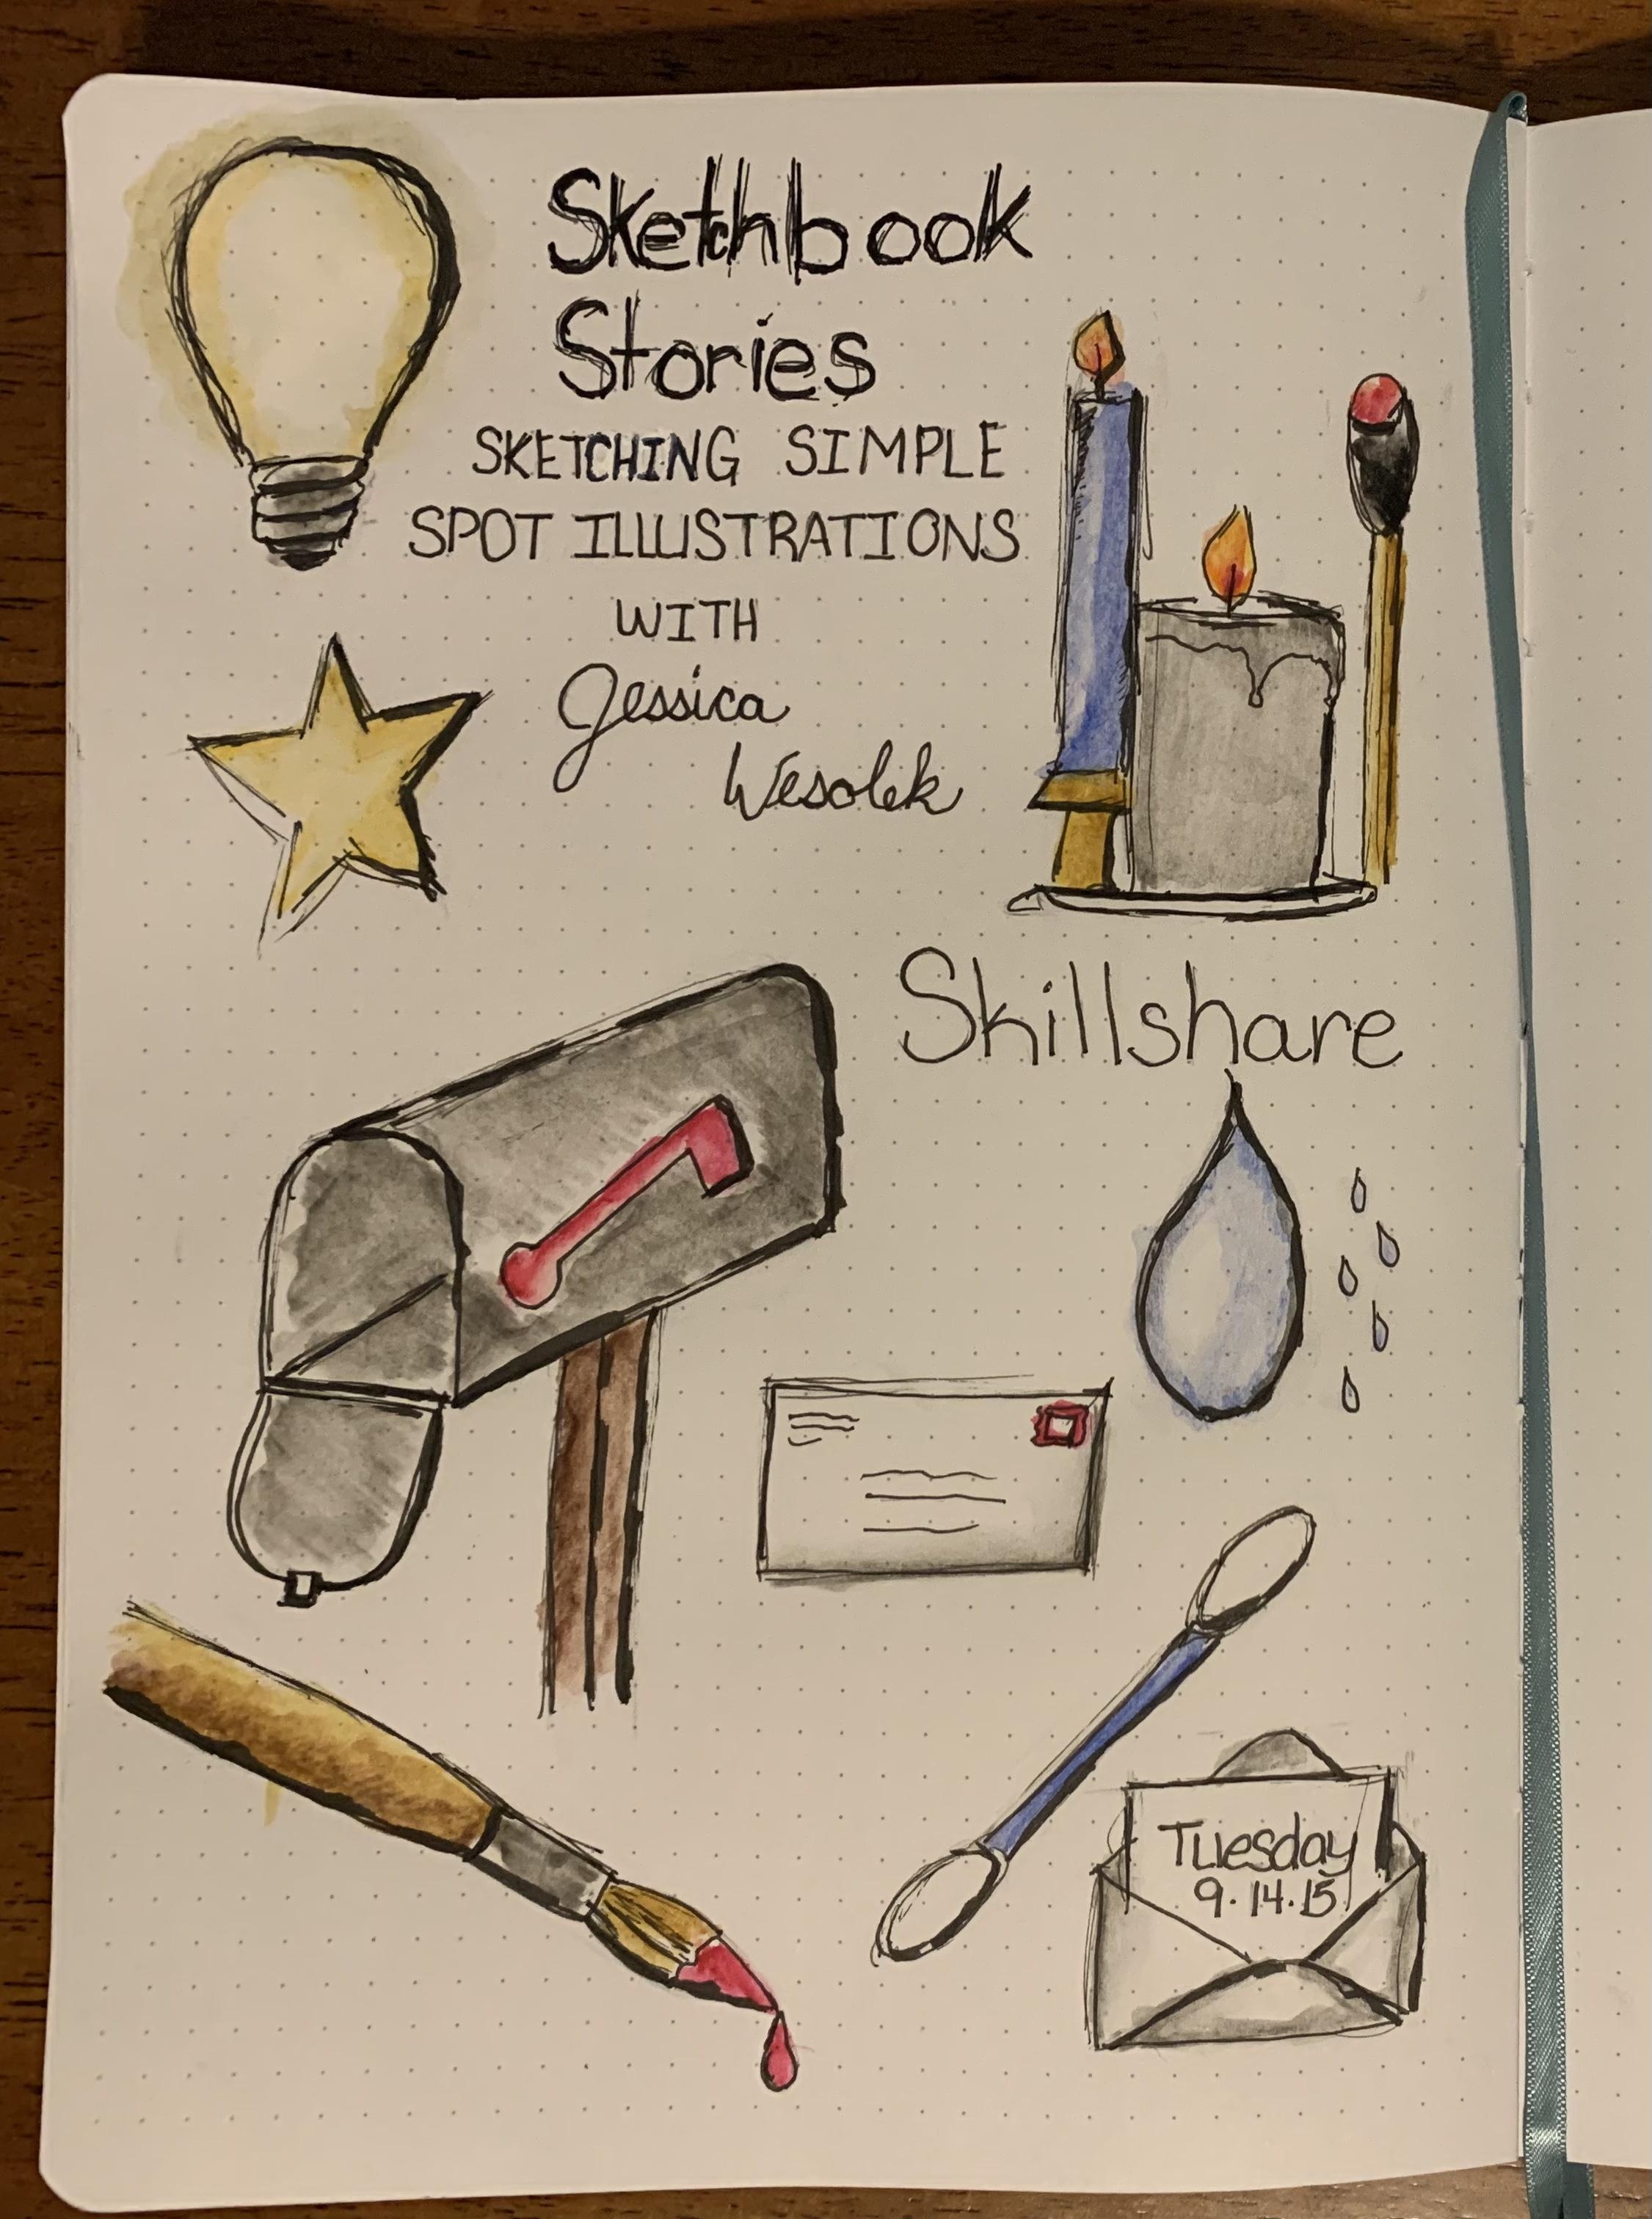 Sketchbook
Stories
SKETCHING SIMPLE
SPOT ILLUSTRATIONS
WITH
Jessica
Wesolek
Skillshare
Tuesday
9.14.15